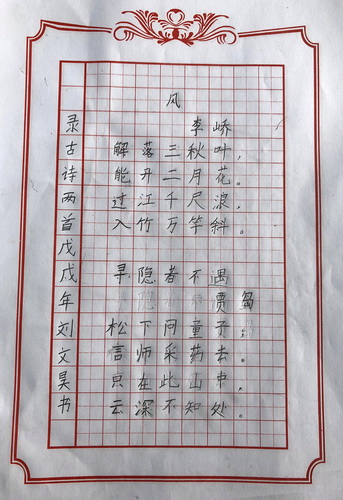 风
李峤
解落三秋叶，
能开二月花。
过江千尺浪，
入竹万竿斜。
寻隐者不遇
贾岛
松下问童子；
言师采药去。
只在此山中，
云深不知处。
录古诗两首戊戌年刘文昊书